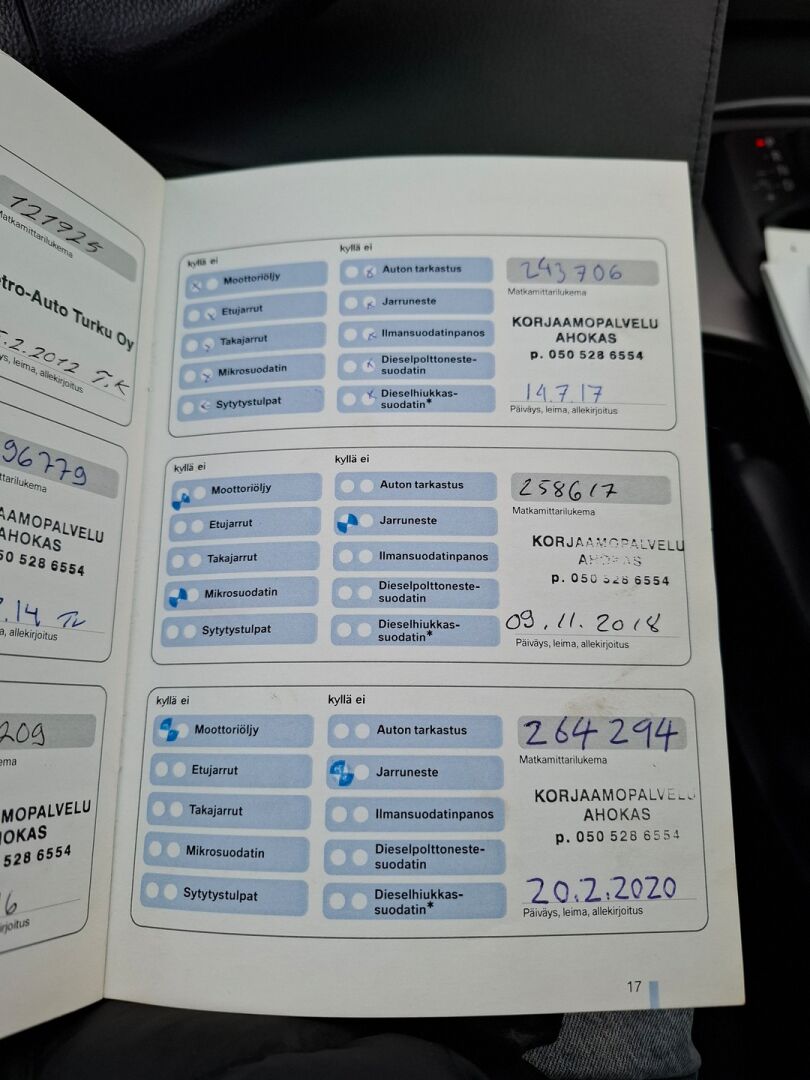 121925
Matkamittarilukema
tro-Auto Turku Oy
.2.2012 T.K
ys, leima, allekirjoitus
96779
ttarilukema
AAMOPALVELU
AHOKAS
50 528 6554
.14
a, allekirjoitus
209
ema
MOPALVELU
HOKAS
528 6554
6
irjoitus
kyllä ei
kyllä ei
Moottoriöljy
Etujarrut
Takajarrut
Mikrosuodatin
Sytytystulpat
Auton tarkastus
Jarruneste
Ilmansuodatinpanos
Dieselpolttoneste-
suodatin
Dieselhiukkas-
suodatin*
243706
Matkamittarilukema
KORJAAMOPALVELU
AHOKAS
p. 050 528 6554
14.7.17
Päiväys, leima, allekirjoitus
kyllä ei
kyllä ei
Moottoriöljy
Etujarrut
Takajarrut
Mikrosuodatin
Sytytystulpat
Auton tarkastus
Jarruneste
Ilmansuodatinpanos
Dieselpolttoneste-
suodatin
Dieselhiukkas-
suodatin*
258617
Matkamittarilukema
KORJAAMOPALVELU
AHOKAS
p. 050 528 6554
09.11.2018
Päiväys, leima, allekirjoitus
kyllä ei
kyllä ei
Moottoriöljy
Etujarrut
Takajarrut
Mikrosuodatin
Sytytystulpat
Auton tarkastus
Jarruneste
Ilmansuodatinpanos
Dieselpolttoneste-
suodatin
Dieselhiukkas-
suodatin*
264 294
Matkamittarilukema
KORJAAMOPALVELU
AHOKAS
p. 050 528 6554
20.2.2020
Päiväys, leima, allekirjoitus
17